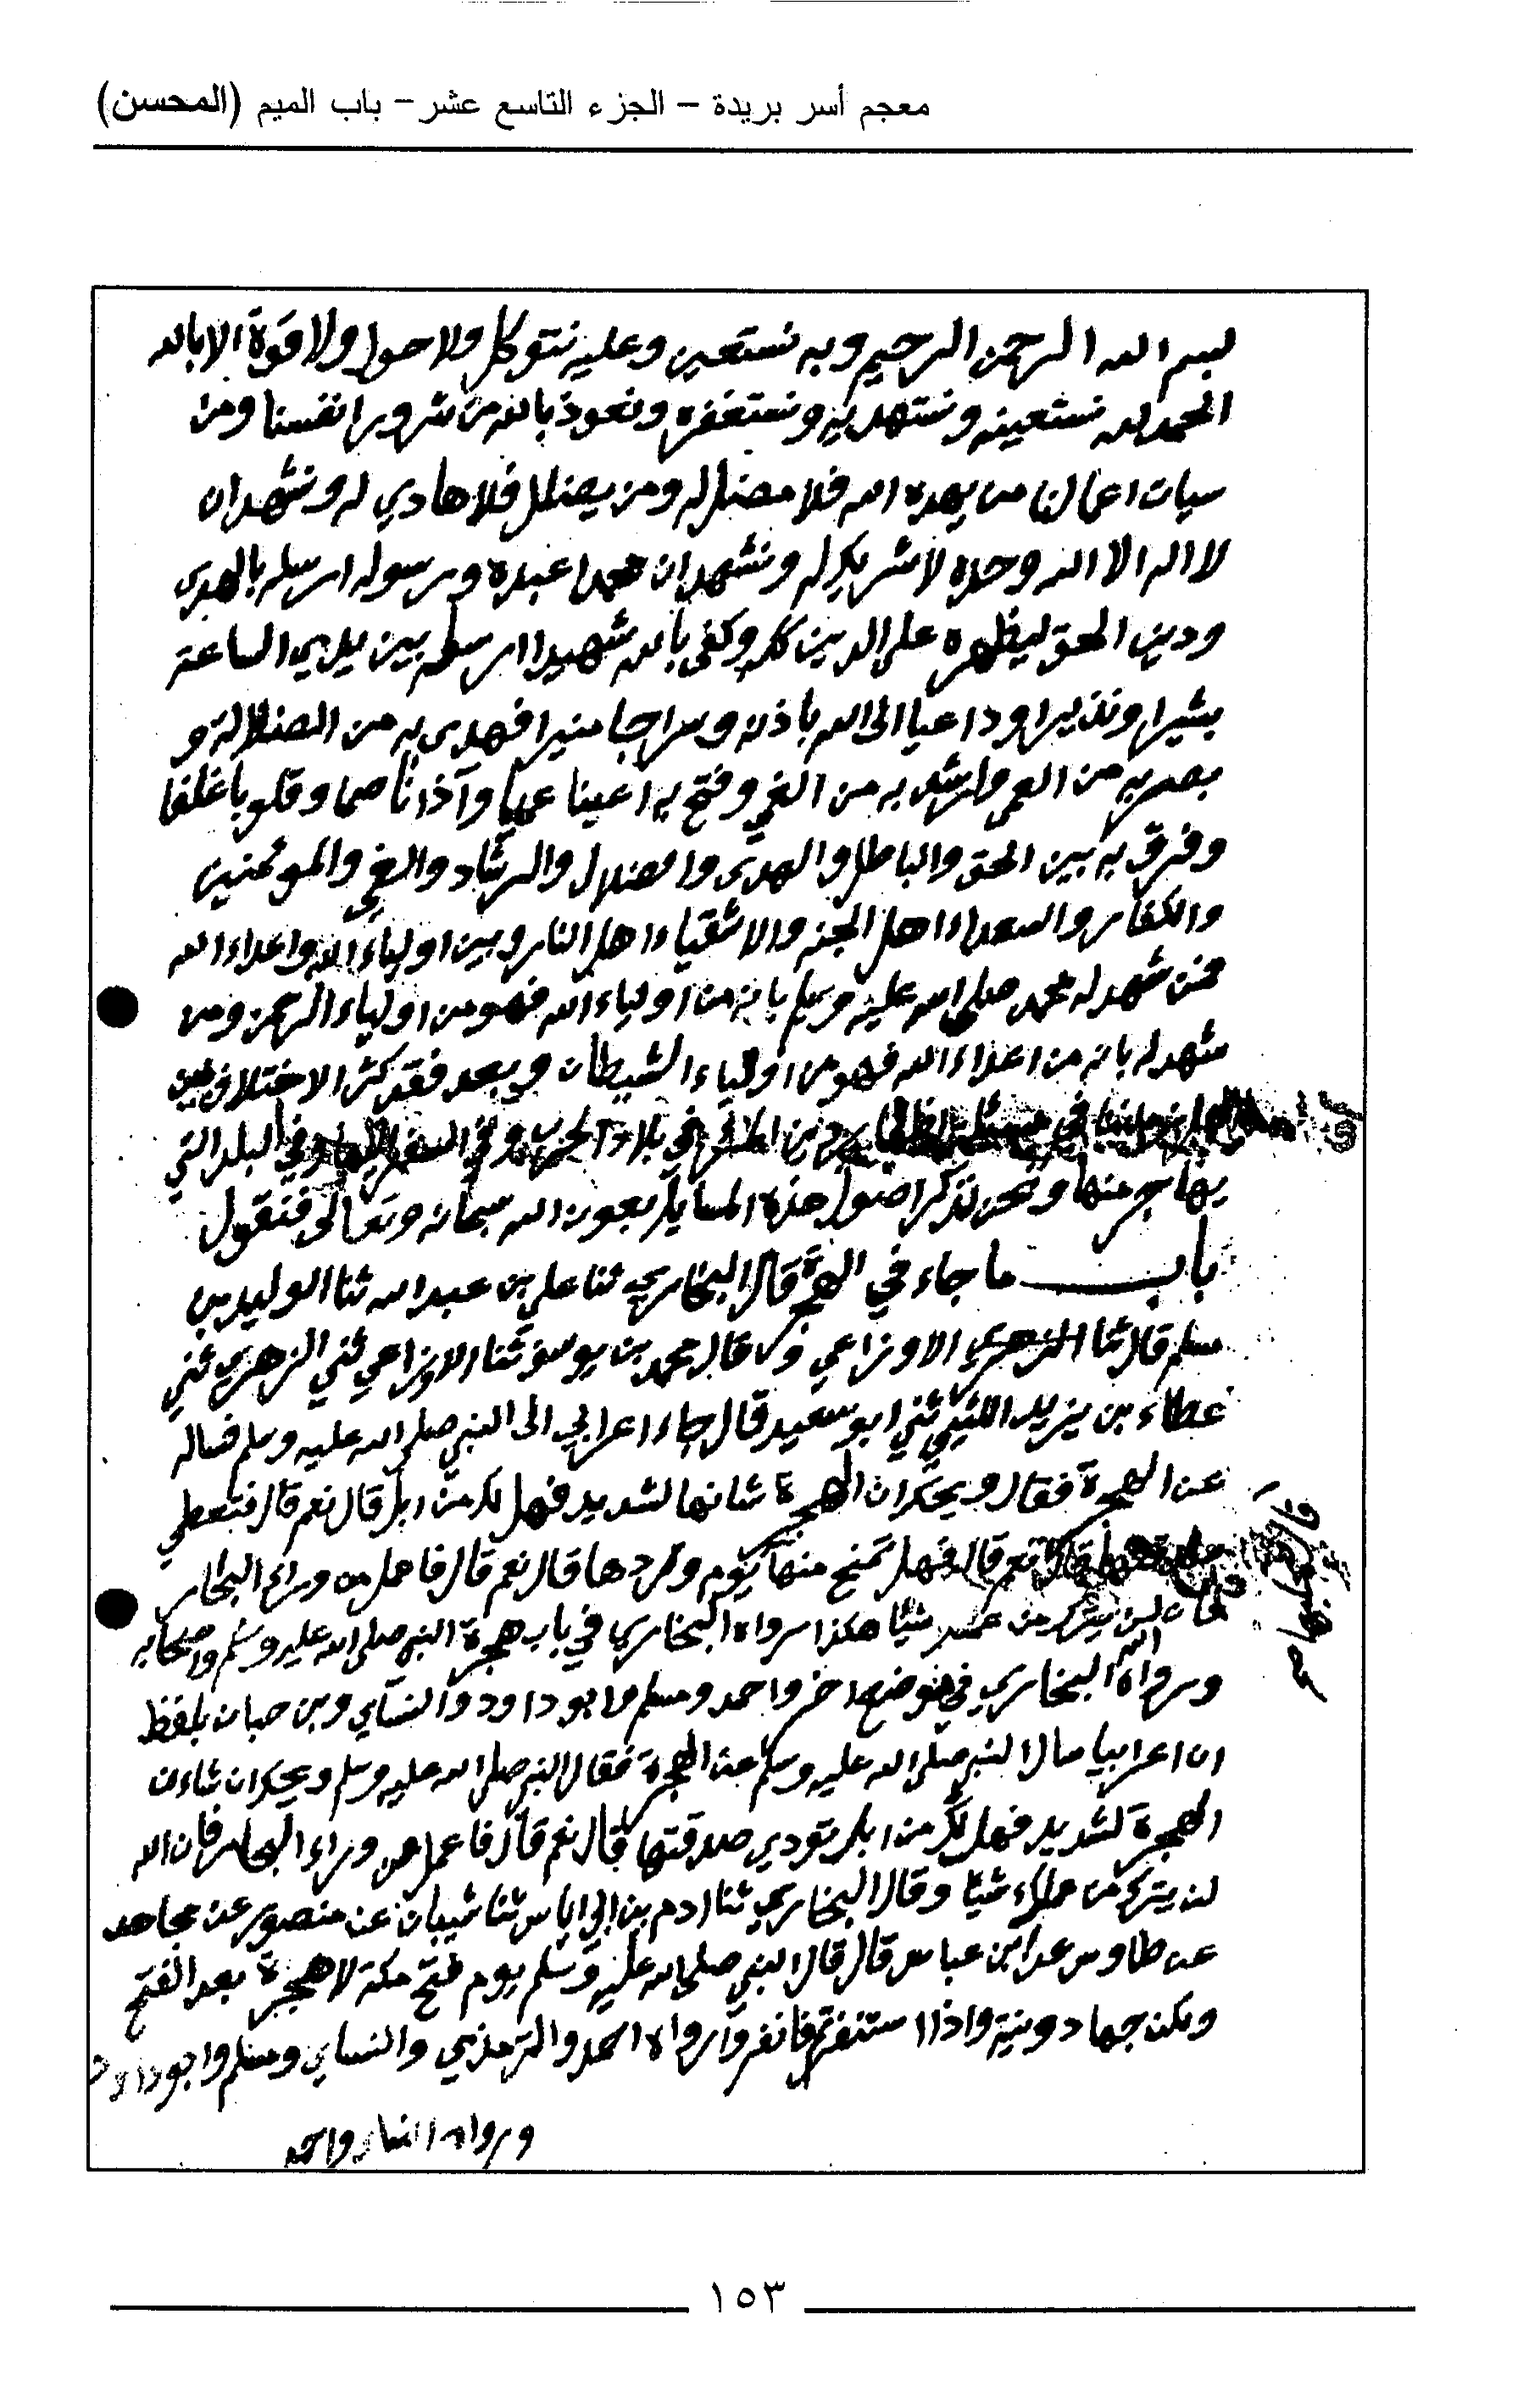 معجم أسر بريدة – الجزء التاسع عشر – باب الميم (المحسن)
بسم الله الرحمن الرحيم وبه نستعين وعليه نتوكل ولا حول ولا قوة الا بالله
الحمد لله نستعينه ونستهديه ونستغفره ونعوذ بالله من شرور انفسنا ومن
سيات اعمالنا من يهده الله فلا مضل له ومن يضلل فلا هادي له ونشهد ان
لا اله الا الله وحده لا شريك له ونشهد ان محمدا عبده ورسوله ارسله بالهدى
ودين الحق ليظهره على الدين كله وكفى بالله شهيدا ارسله بين يدي الساعة
بشيرا ونذيرا وداعيا الى الله باذنه وسراجا منيرا فهدى به من الضلالة و
بصر به من العمى وارشد به من الغي وفتح به اعينا عميا وآذانا صما وقلوبا غلفا
وفرق به بين الحق والباطل والهدى والضلال والرشاد والغي والمومنين
والكفار والسعداء اهل الجنه والاشقياء اهل النار وبين اولياء الله واعداء الله
فمن شهد له محمد صلى الله عليه وسلم بانه من اولياء الله فهو من اولياء الرحمن ومن
شهد له بانه من اعداء الله فهو من اولياء الشيطان وبعد فقد كثر الاختلاف بين
في بلاد الحرب وفي السفر اليها وفي البلد التي
يهاجر منها ونحن نذكر اصول هذه المسايل بعون الله سبحانه وتعالى فنقول
باب ما جاء في الهجرة قال البخاري ثنا علي بن عبد الله ثنا الوليد بن
مسلم قال ثنا الاوزاعي وقال محمد بن يوسف ثنا الاوزاعي ثني الزهري ثني
عطاء بن يزيد الليثي ثني ابو سعيد قال جاء اعرابي الى النبي صلى الله عليه وسلم فساله
عن الهجرة فقال ويحك ان الهجرة شانها لشديد فهل لك من ابل قال نعم قال فتعطي
صدقتها قال نعم قال فهل تمنح منها يوم وردها قال نعم قال فاعمل من وراء البحار
فان الله لن يترك من عملك شيئا هكذا رواه البخاري في باب هجرة النبي صلى الله عليه وسلم واصحابه
ورواه البخاري في موضع اخر واحمد ومسلم وابو داود والنساي وبن حبان بلفظ
ان اعرابيا سال النبي صلى الله عليه وسلم عن الهجرة فقال النبي صلى الله عليه وسلم ويحك ان شان
الهجرة لشديد فهل لك من ابل تودي صدقتها قال نعم قال فاعمل من وراء البحار فان الله
لن يترك من عملك شيئا وقال البخاري ثنا ادم بن ابي اياس ثنا شيبان عن منصور عن مجاهد
عن طاوس عن ابن عباس قال قال النبي صلى الله عليه وسلم يوم فتح مكة لا هجرة بعد الفتح
ولكن جهاد ونية واذا استنفرتم فانفروا رواه احمد والترمذي والنساي ومسلم وابو داود
ورواه
١٥٣